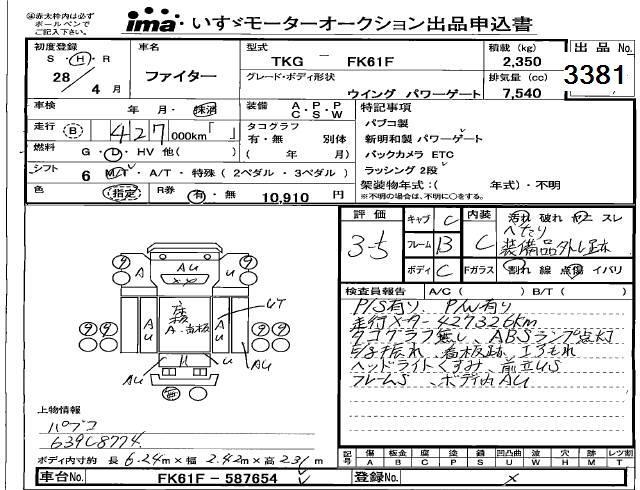 ㊟赤太枠内は必ず
ボールペンで
ご記入下さい。
ima いすゞモーターオークション出品申込書
初度登録 S・H・R 28/4月
車名 ファイター
型式 TKG － FK61F
積載 (kg) 2,350
出品 No. 3381
グレード・ボディ形状 ウイング パワーゲート
排気量 (cc) 7,540
車検 年 月・抹消
装備 A・P・P C S W
特記事項
走行 B 427 000km「 」
タコグラフ 有・無 別体 ( 年 月)
パブコ製
新明和製 パワーゲート
燃料 G・D・HV 他( )
バックカメラ ETC
シフト 6 M/T・A/T・特殊 (2ペダル・3ペダル)
ラッシング 2段
色 (指定) R券 有・無 10,910 円
架装物年式：( 年式)・不明
※不明の場合は、不明に○をする。
評価 3.5
キャブ C
内装 C
汚れ 破れ ヤニ スレ
へたり
装備品外し跡
フレーム B
ボディ C
Fガラス 割れ 線 点傷 イパリ
検査員報告 A/C ( ) B/T ( )
P/S有り、P/W有り
走行メーター 427326km
タコグラフ無し、ABSランプ点灯
看板跡
ヘッドライトくすみ、前立US
フレームS、ボディ内AU
AU
U
U
AU
A
U
A
U
A・看板
UT
U
AU
AU
無
上物情報
パブコ
639C8774
ボディ内寸約 長 6.24m×幅 2.42m×高 2.36m
記号 傷 A 板金 B 腐 C 塗 P 錆 S 凹凸曲 U 波 W 穴 H 跡 M レツ割 T
車台No. FK61F－587654
登録No. ×